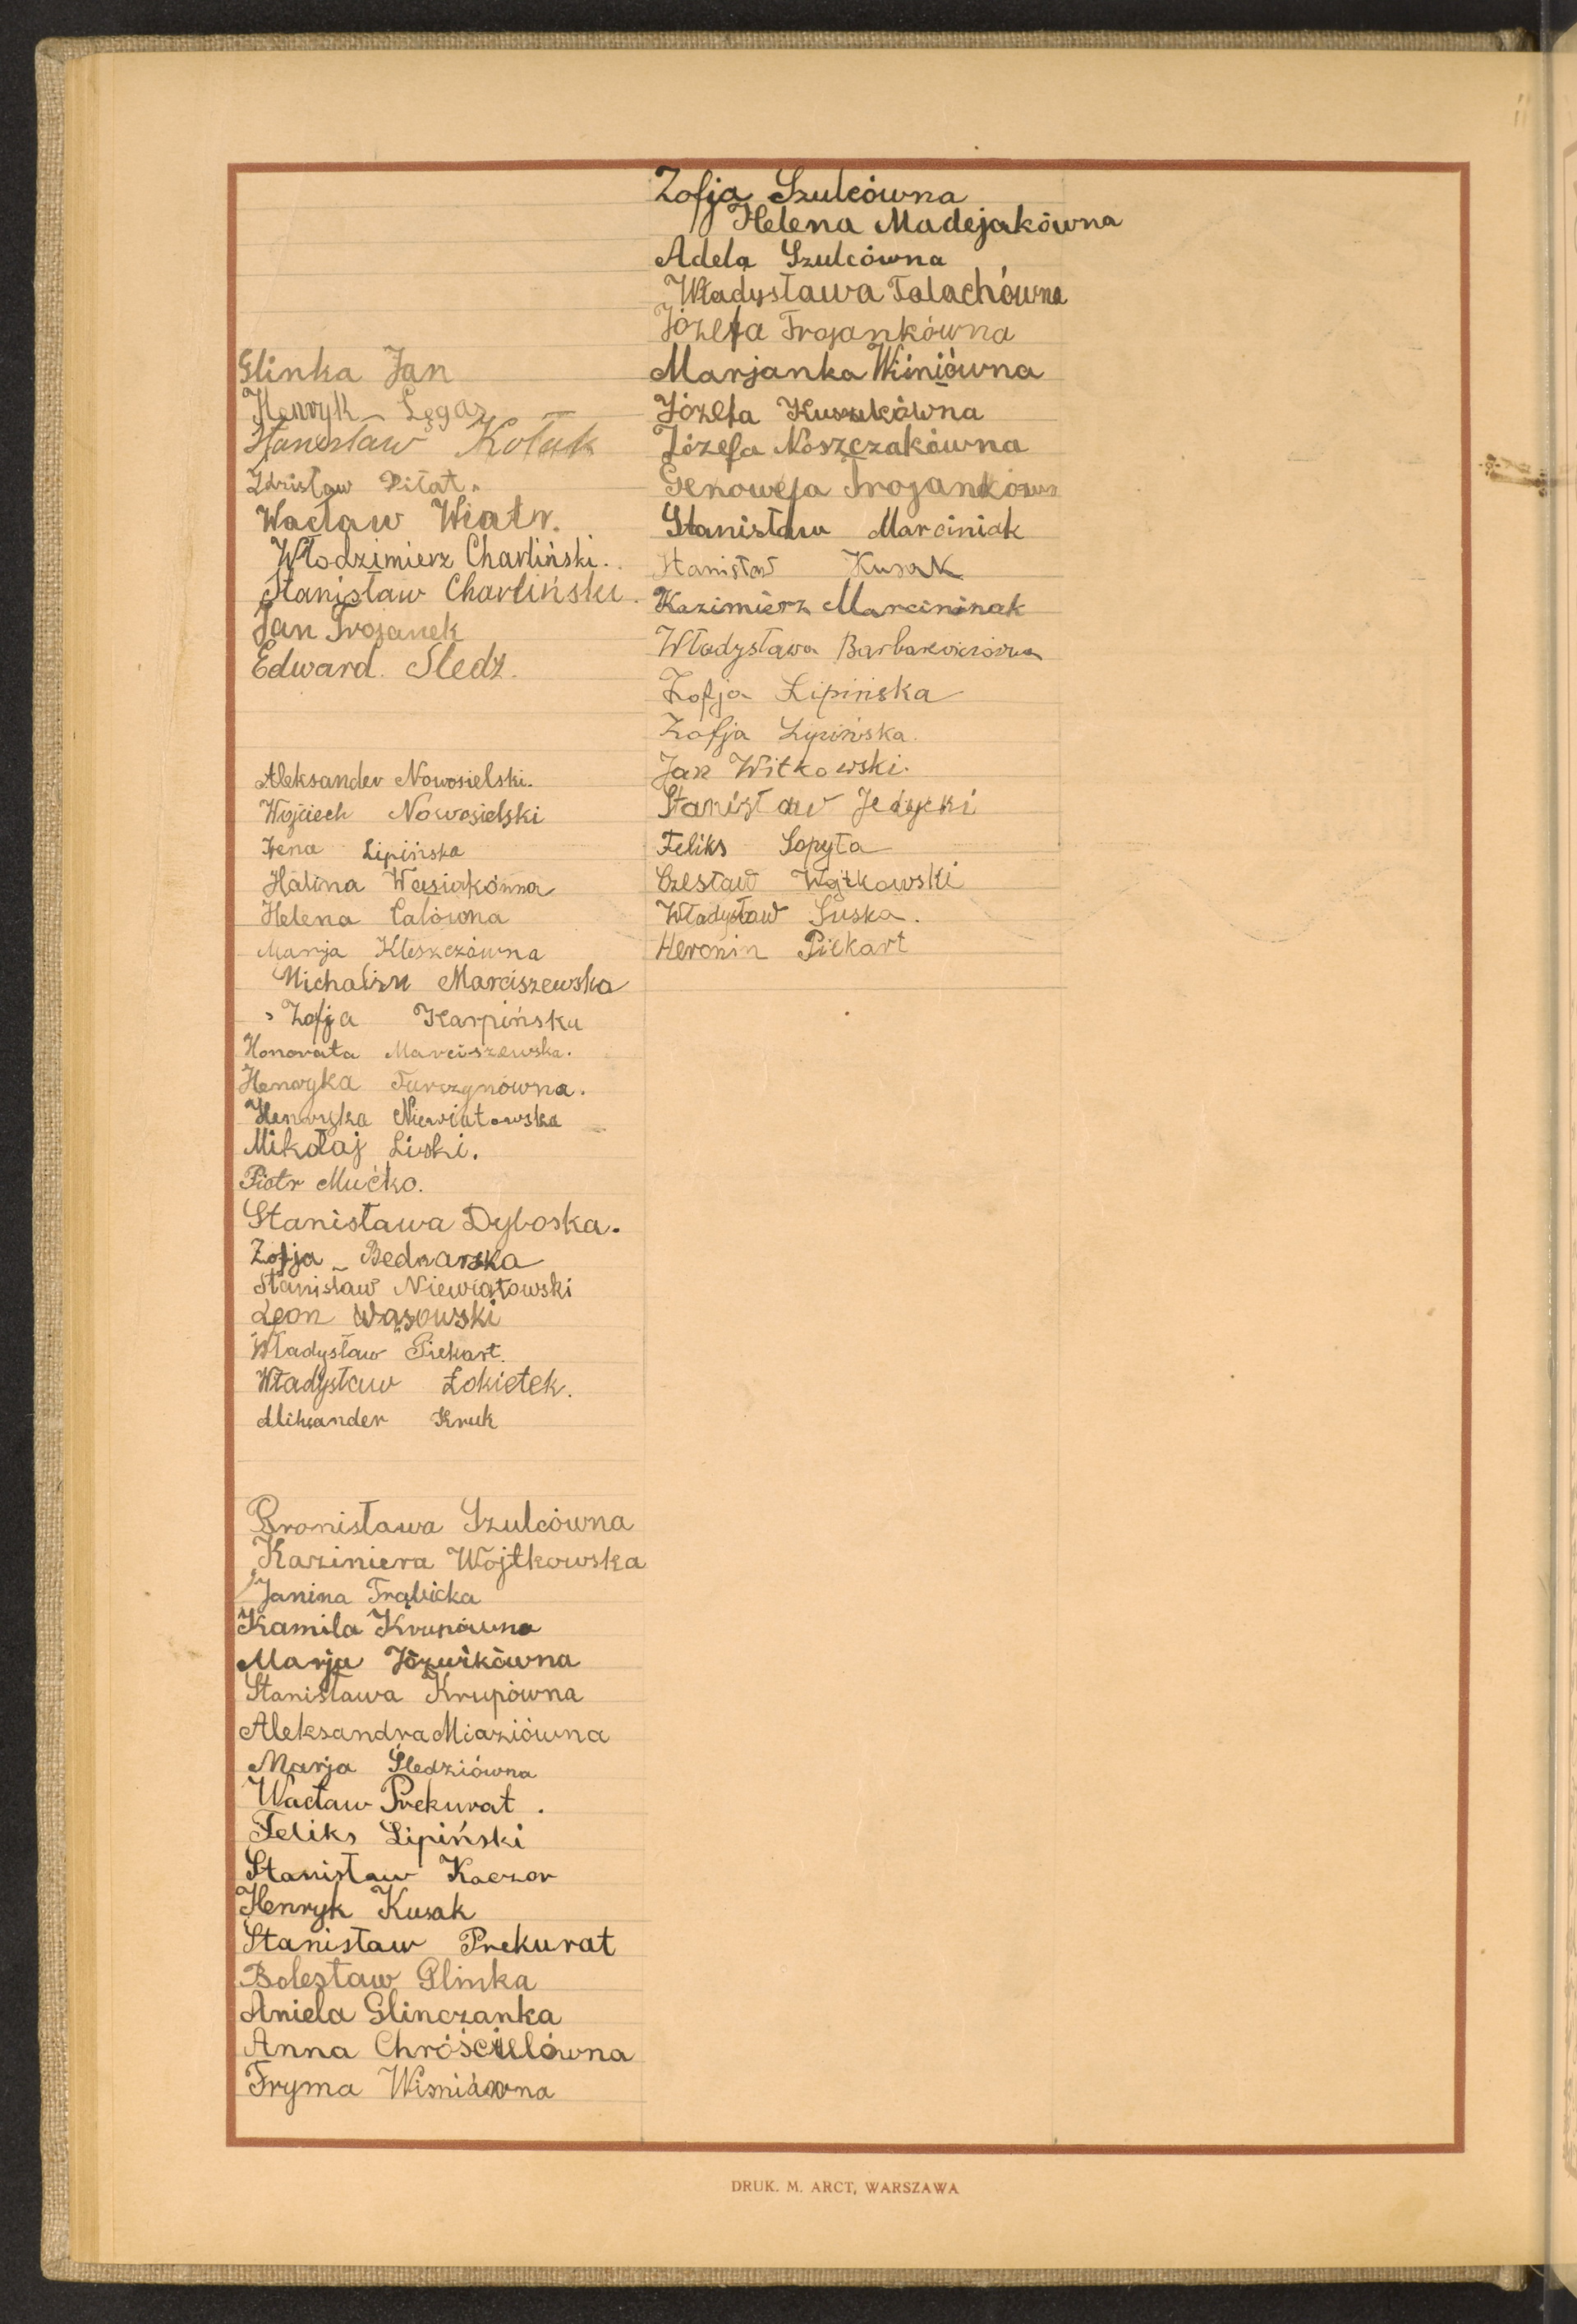 Glinka Jan
Henryk Sęgar
Stanisław Kołak
Zdzisław Piłat.
Wacław Wiatr.
Włodzimierz Charliński.
Stanisław Charliński.
Jan Trojanek
Edward. Śledz.
Aleksander Nowosielski.
Wojciech Nowosielski
Irena Lipińska
Halina Wasiakówna
Helena Calówna
Marja Kleszczówna
Michalina Marciszewska
Zofja Karpińska
Honorata Marciszewska.
Henryka Turczynówna.
Henryka Niewiatowska
Mikołaj Liski.
Piotr Mućko.
Stanisława Dyboska.
Zofja Bednarska
Stanisław Niewiatowski
Leon Wąsowski
Władysław Piekart.
Władysław Łokietek.
Aliksander Kruk
Bronisława Szulcówna
Kaziniera Wojtkowska
Janina Trąbicka
Kamila Krupówna
Marja Józwikówna
Stanisława Krupówna
Aleksandra Miaziówna
Marja Śledziówna
Wacław Prekurat.
Feliks Lipiński
Stanisław Kaczor
Henryk Kusak
Stanisław Prekurat
Bolesław Glinka
Aniela Glinczanka
Anna Chróścielówna
Fryma Wiśniówna
Zofja Szulcówna
Helena Madejakówna
Adela Szulcówna
Władysława Talachówna
Józefa Trojankówna
Marjanka Wiśniówna
Józefa Kuszukówna
Józefa Noszczakówna
Genowefa Trojankówn
Stanisław Marciniak
Stanisław Kusak
Kazimierz Marcininak
Władysława Barbarewiczówna
Zofja Lipińska
Zofja Lipińska.
Jan Witkowski.
Stanisław Jedycki
Feliks Sopyła
Czesław Wojtkowski
Władysław Suska.
Heronin Piekart
DRUK. M. ARCT, WARSZAWA